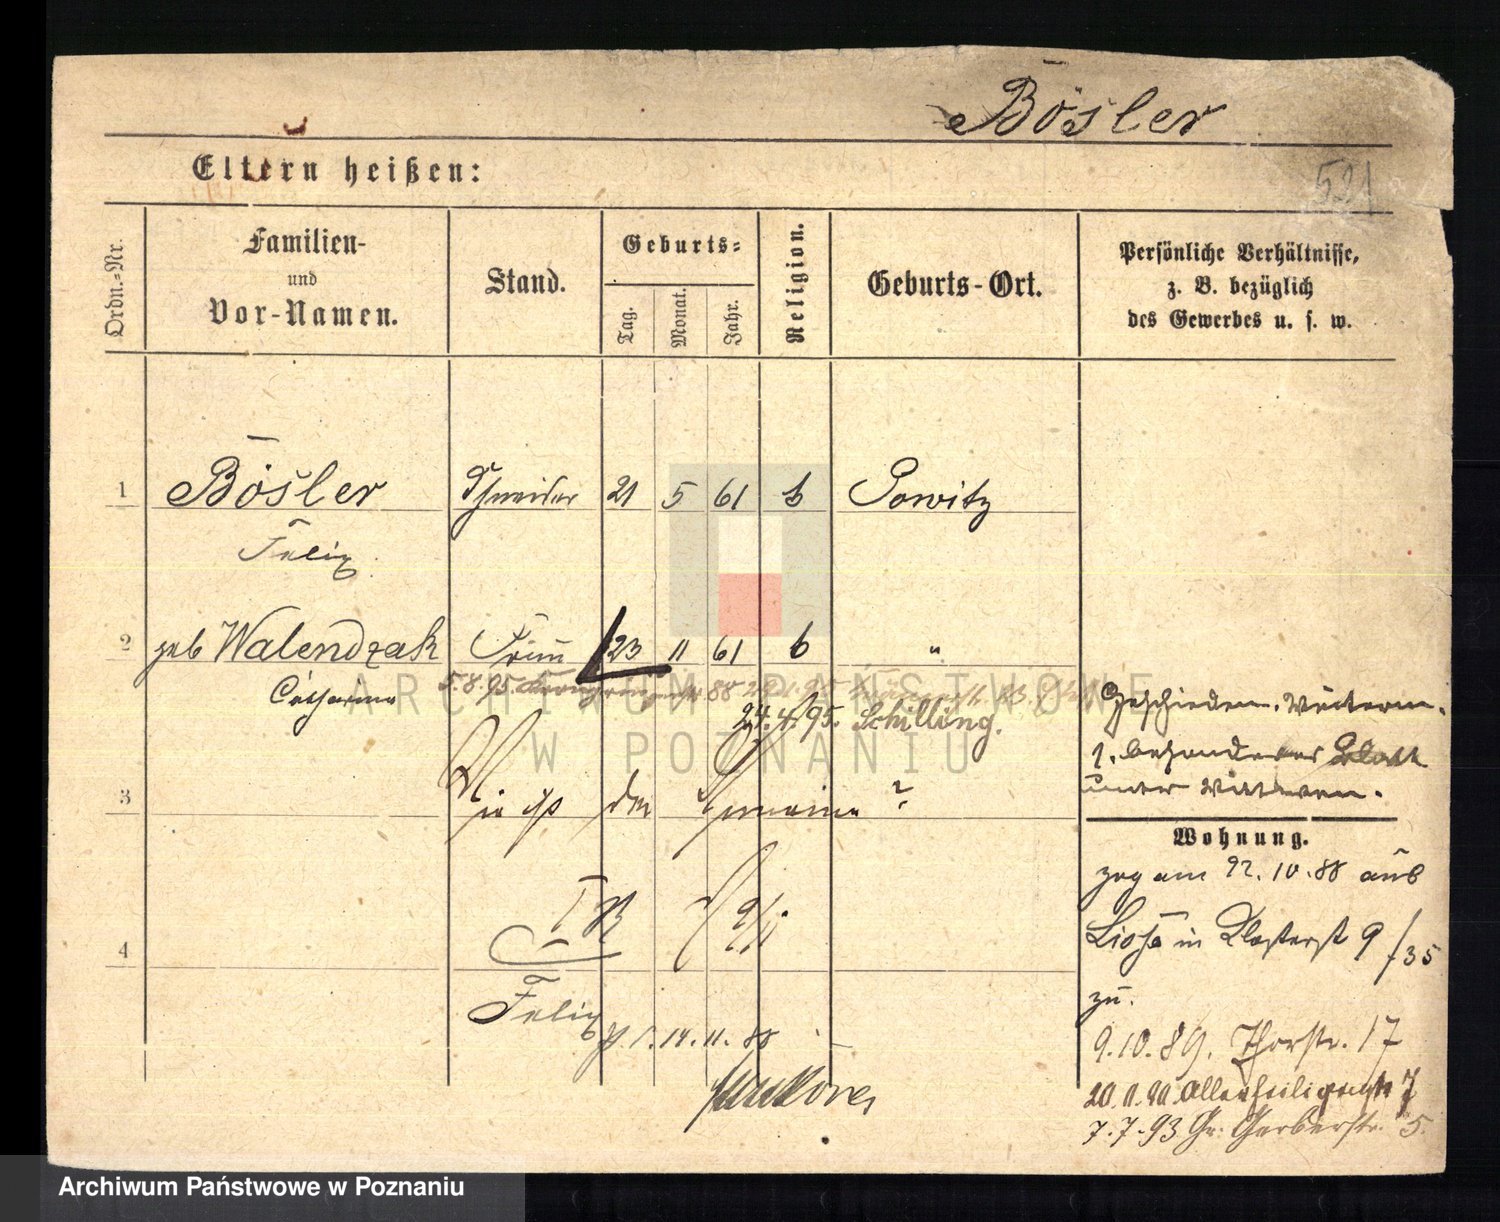 Bösler
521
Eltern heißen:
Ordn.-Nr.
Familien-
und
Vor-Namen.
Stand.
Geburts-
Tag.
Monat.
Jahr.
Religion.
Geburts-Ort.
Persönliche Verhältnisse,
z. B. bezüglich
des Gewerbes u. s. w.
1 Bösler Schneider 21 5 61 k Sowitz
Felix
2 geb Walendzak Frau 23 11 61 k "
Catharina
5.8.95. 88
24.4.95. Schilling.
Geschieden.
1.
unter
3 ist der ?
Wohnung.
zog am 22.10.88 aus
in Klosterst 9/35
zu.
4
Felix
14.11.88
9.10.89. Thorstr. 17
20.11.90 Allerheiligenstr 7
7.7.93 Gr. Gerberstr. 5.
ARCHIWUM PAŃSTWOWE
W POZNANIU
Archiwum Państwowe w Poznaniu